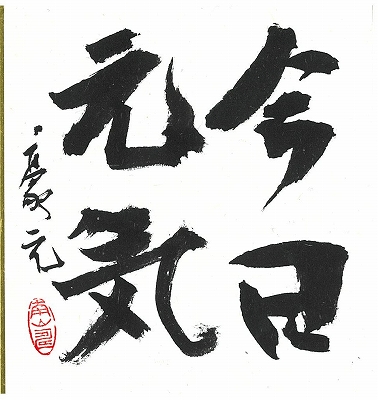 今日
元気
豪元